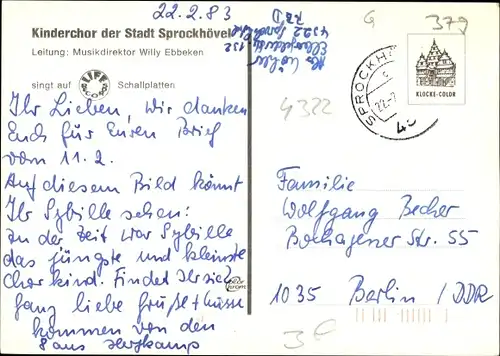 22.2.83
Kinderchor der Stadt Sprockhövel
Leitung: Musikdirektor Willy Ebbeken
singt auf LIFE RECORDS Schallplatten
Ihr Lieben, wir danken
Euch für Euren Brief
vom 11.2.
Auf diesem Bild könnt
Ihr Sybille sehen:
zu der Zeit war Sybille
das jüngste und kleinste
Chorkind. Findet Ihr sie?
Ganz liebe Grüße + Küsse
kommen von den
8 aus
4322
132
4322
379
SPROCKH
22.-2
KLOCKE-COLOR
Familie
Wolfgang Becher
Bochagener Str. 55
1035 Berlin / DDR
color
chrom
3€